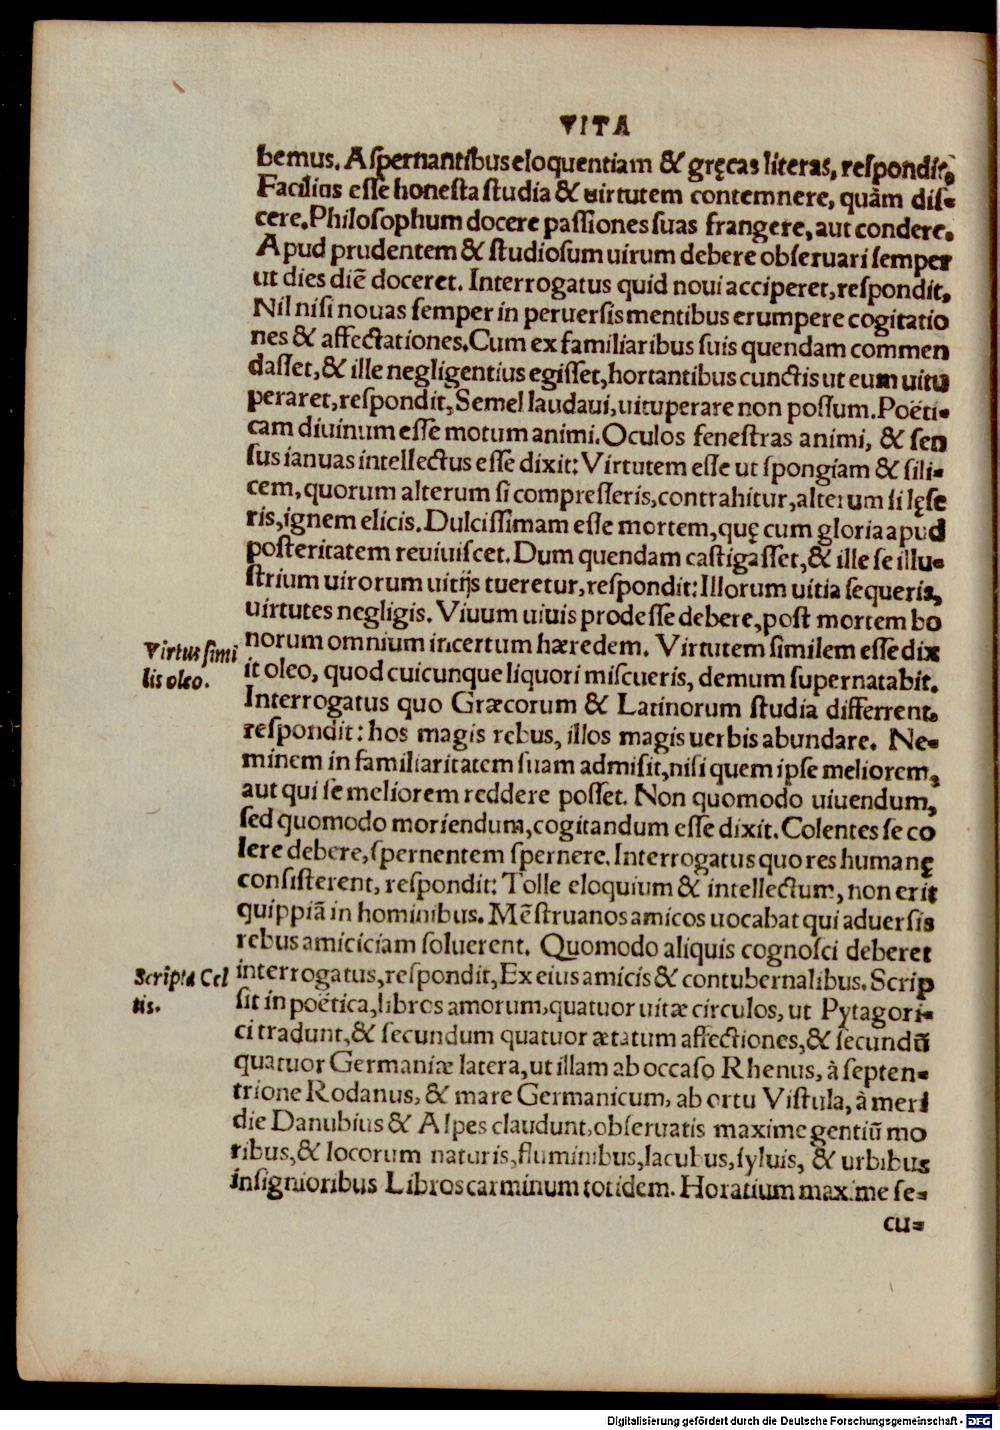 VITA
bemus. Aspernantibus eloquentiam & gręcas literas, respondit,
Facilius esse honesta studia & uirtutem contemnere, quàm dis-
cere. Philosophum docere passiones suas frangere, aut condere.
Apud prudentem & studiosum uirum debere obseruari semper
ut dies diē doceret. Interrogatus quid noui acciperet, respondit,
Nil nisi nouas semper in peruersis mentibus erumpere cogitatio
nes & affectationes. Cum ex familiaribus suis quendam commen
dasset, & ille negligentius egisset, hortantibus cunctis ut eum uitu
peraret, respondit, Semel laudaui, uituperare non possum. Poëti-
cam diuinum esse motum animi. Oculos fenestras animi, & sen
sus ianuas intellectus esse dixit: Virtutem esse ut spongiam & sili-
cem, quorum alterum si compresseris, contrahitur, alterum si lęse
ris, ignem elicis. Dulcissimam esse mortem, quę cum gloria apud
posteritatem reuiuiscet. Dum quendam castigasset, & ille se illu-
strium uirorum uitijs tueretur, respondit: Illorum uitia sequeris,
uirtutes negligis. Viuum uiuis prodesse debere, post mortem bo
Virtus simi
lis oleo.
norum omnium incertum hæredem. Virtutem similem esse dix
it oleo, quod cuicunque liquori miscueris, demum supernatabit.
Interrogatus quo Græcorum & Latinorum studia differrent,
respondit: hos magis rebus, illos magis uerbis abundare. Ne-
minem in familiaritatem suam admisit, nisi quem ipse meliorem,
aut qui se meliorem reddere posset. Non quomodo uiuendum,
sed quomodo moriendum, cogitandum esse dixit. Colentes se co
lere debere, spernentem spernere. Interrogatus quo res humanę
consisterent, respondit: Tolle eloquium & intellectum, non erit
quippiā in hominibus. Mēstruanos amicos uocabat qui aduersis
rebus amiciciam soluerent. Quomodo aliquis cognosci deberet
Scripta Cel
tis.
interrogatus, respondit, Ex eius amicis & contubernalibus. Scrip
sit in poëtica, libros amorum, quatuor uitæ circulos, ut Pytagori-
ci tradunt, & secundum quatuor ætatum affectiones, & secundū
quatuor Germaniæ latera, ut illam ab occaso Rhenus, à septen-
trione Rodanus, & mare Germanicum, ab ortu Vistula, à meri
die Danubius & Alpes claudunt, obseruatis maxime gentiū mo
ribus, & locorum naturis, fluminibus, lacubus, syluis, & urbibus
insignioribus Libros carminum totidem. Horatium maxime se-
cu-
Digitalisierung gefördert durch die Deutsche Forschungsgemeinschaft - DFG